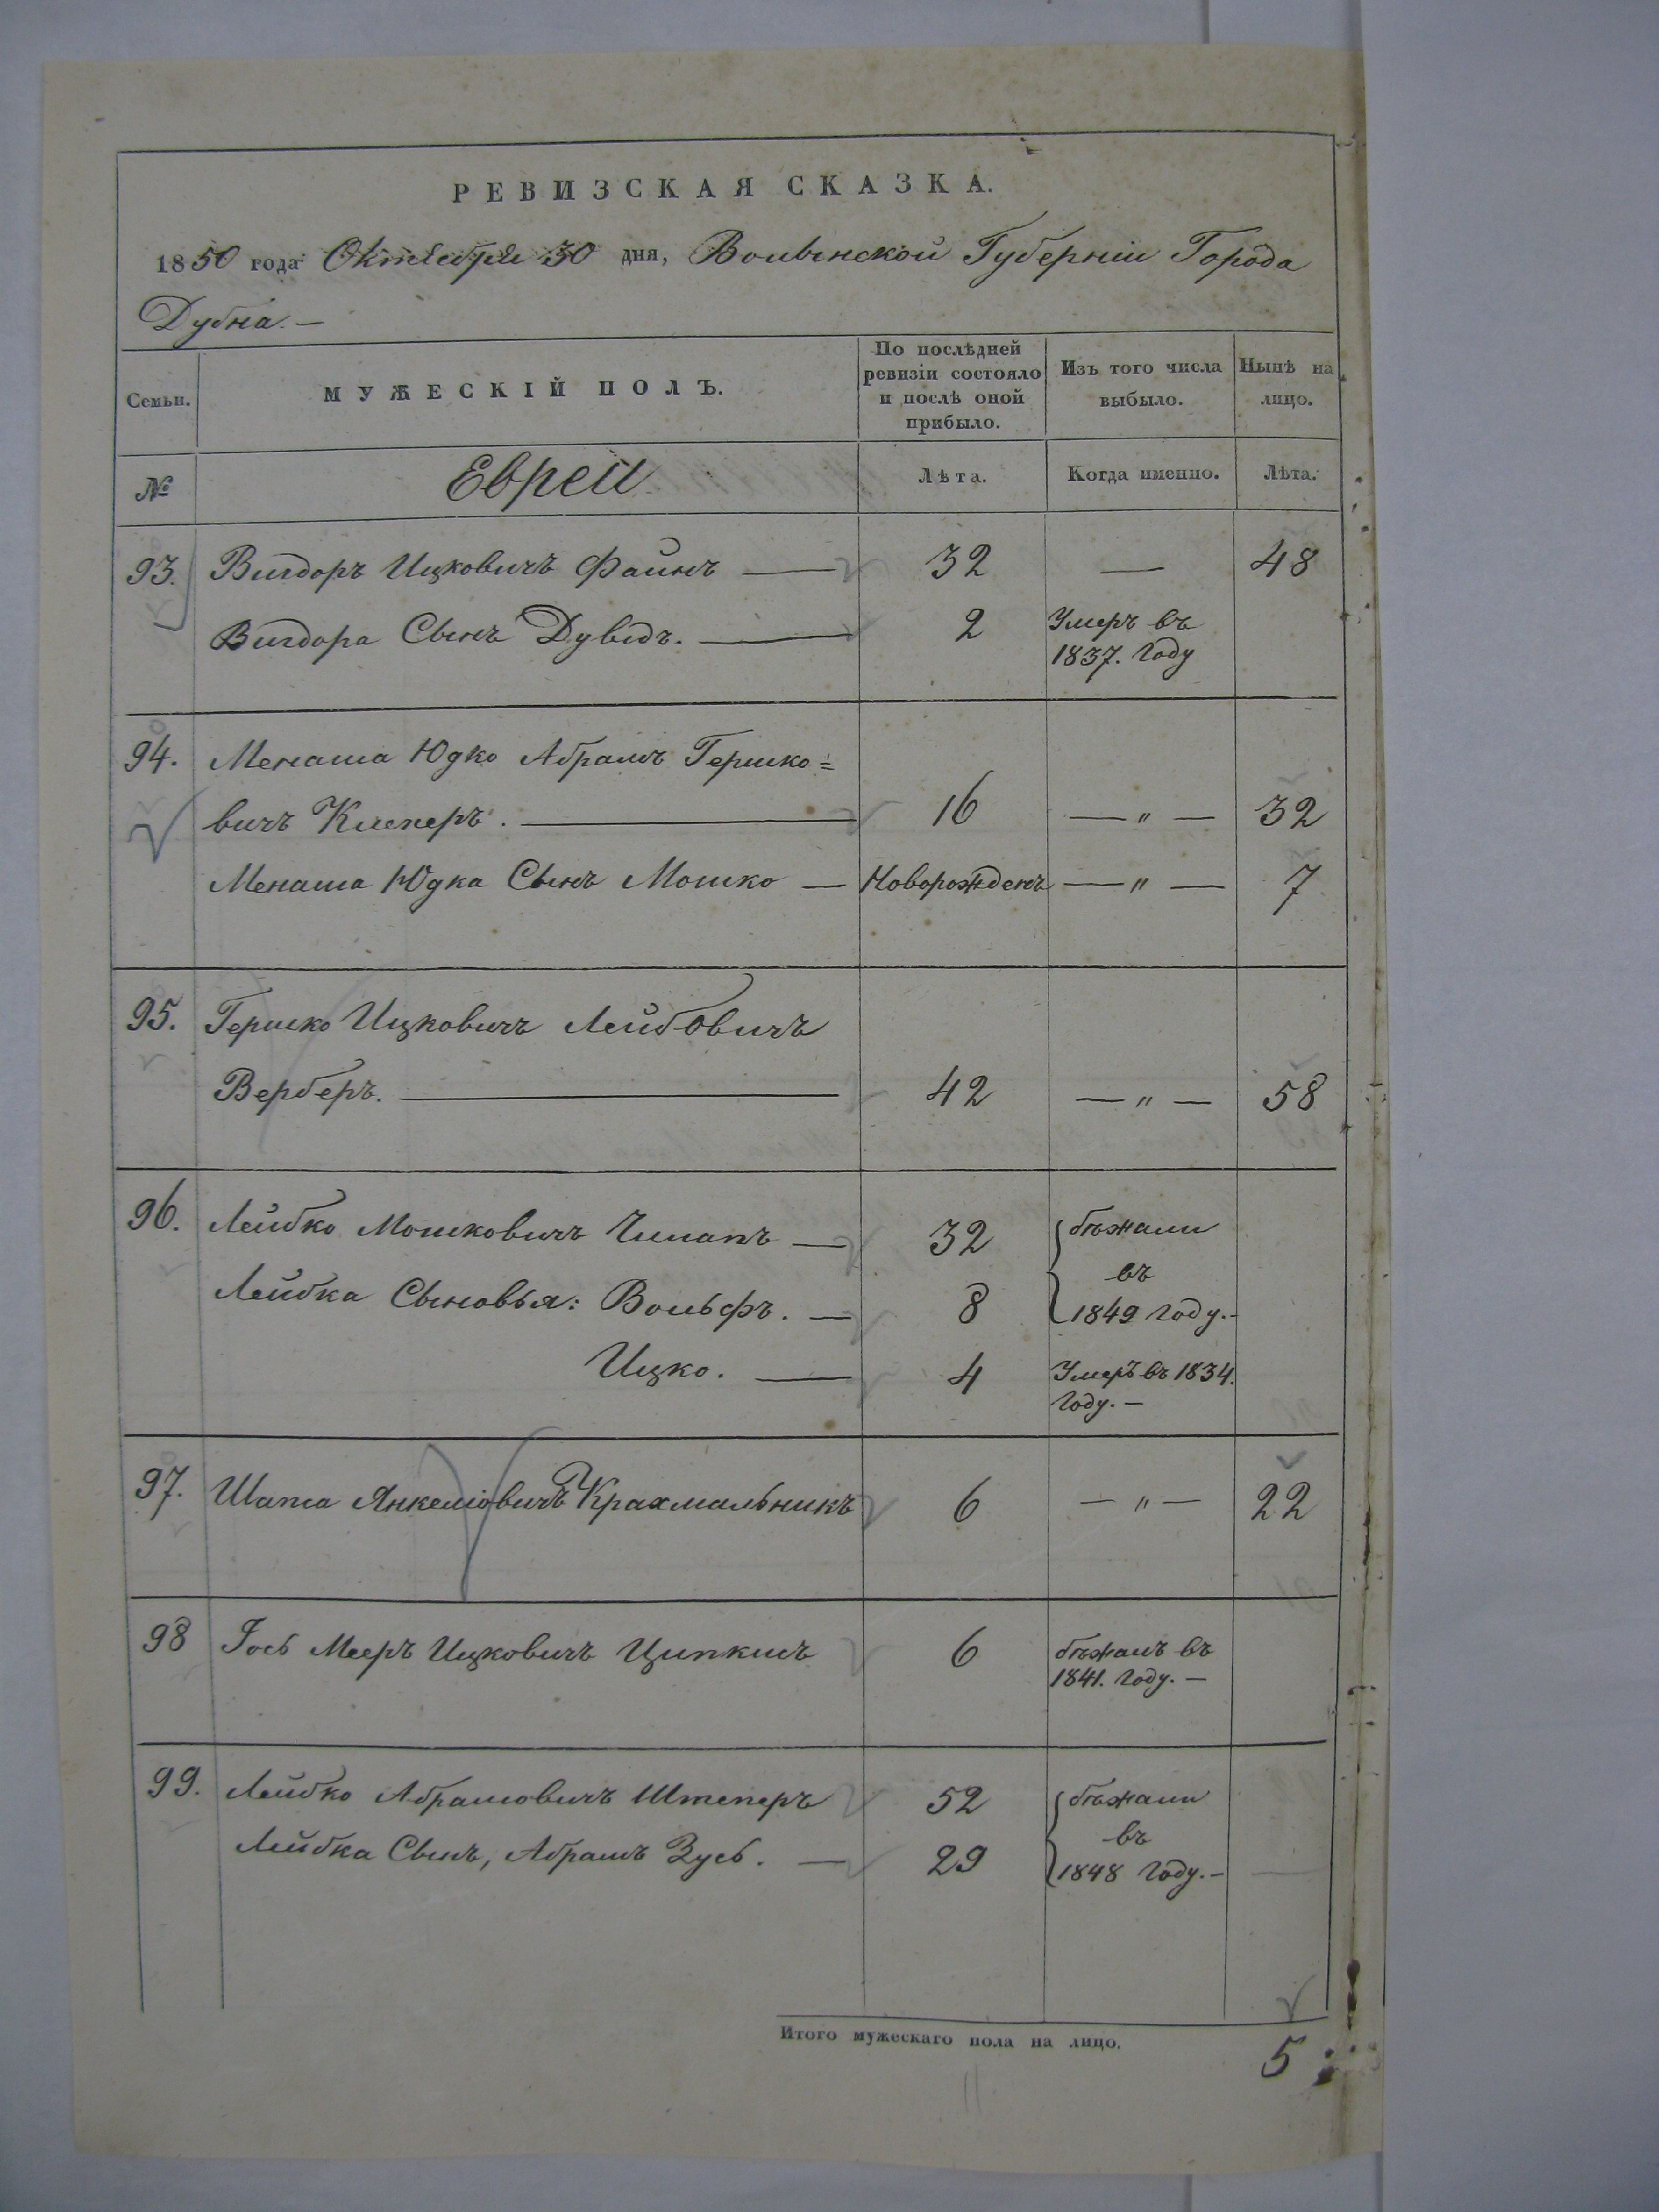 РЕВИЗСКАЯ СКАЗКА.
1850 года Октября 30 дня, Волынской Губерніи Города
Дубна. —
Семьи.
МУЖЕСКІЙ ПОЛЪ.
По послѣдней ревизіи состояло и послѣ оной прибыло.
Изъ того числа выбыло.
Нынѣ на лицо.
№
Евреи
Лѣта.
Когда именно.
Лѣта.
93. Вигдоръ Ицковичъ Файнъ — 32 — 48
Вигдора Сынъ Дувидъ. — 2 Умеръ въ
1837. Году
94. Менаша Юдко Абрамъ Гершко=
вичъ Клеперъ. — 16 — " — 32
Менаша Юдка Сынъ Мошко — Новорожденъ — " — 7
95. Гершко Ицковичъ Лейбовичъ
Верберъ. — 42 — " — 58
96. Лейбко Мошковичъ — 32 бѣжали
въ
Лейбка Сыновья: Вольфъ. — 8 1849 году. -
Ицко. — 4 Умеръ въ 1834.
Году. —
97. Шапса Янкелiовичъ Крахмальникъ 6 — " — 22
98 Іось Мееръ Ицковичъ Ципкинъ 6 бѣжалъ въ
1841. Году. —
99. Лейбко Абрамовичъ Штеперъ 52 бѣжали
въ
Лейбка Сынъ, Абрамъ Зусь. — 29 1848 Году. -
Итого мужескаго пола на лицо. 5